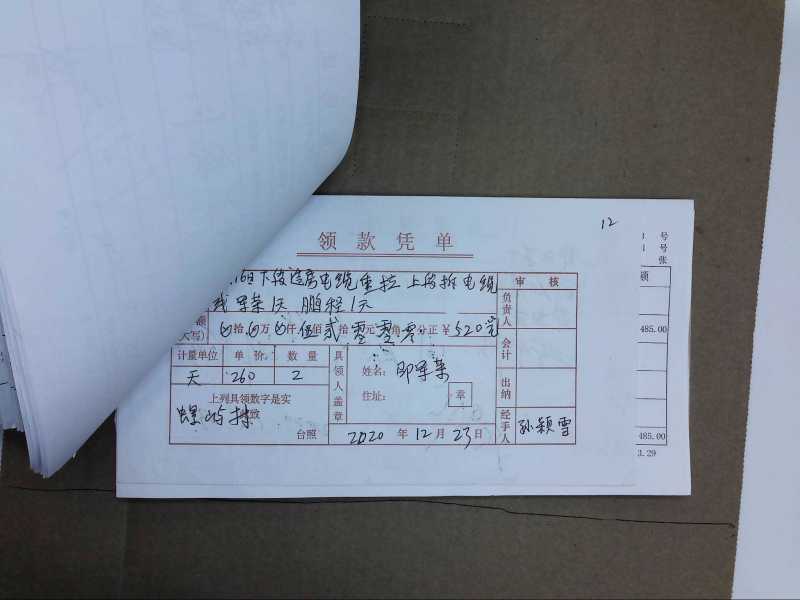 12
领款凭单
16日下段 电缆重拉 上段拆电缆
军荣1天 鹏程1天
审 核
额 拾 万 仟伍佰贰拾零元零角零分正 ¥520元
(大写)
计量单位 单价 数量
天 260 2
上列具领数字是实
致
台照
具领人盖章
姓名: 邱军荣
住址: 章
2020 年 12 月 23 日
负责人
会计
出纳
经手人 孙颖雪
号
号
张
额
485.00
485.00
3.29